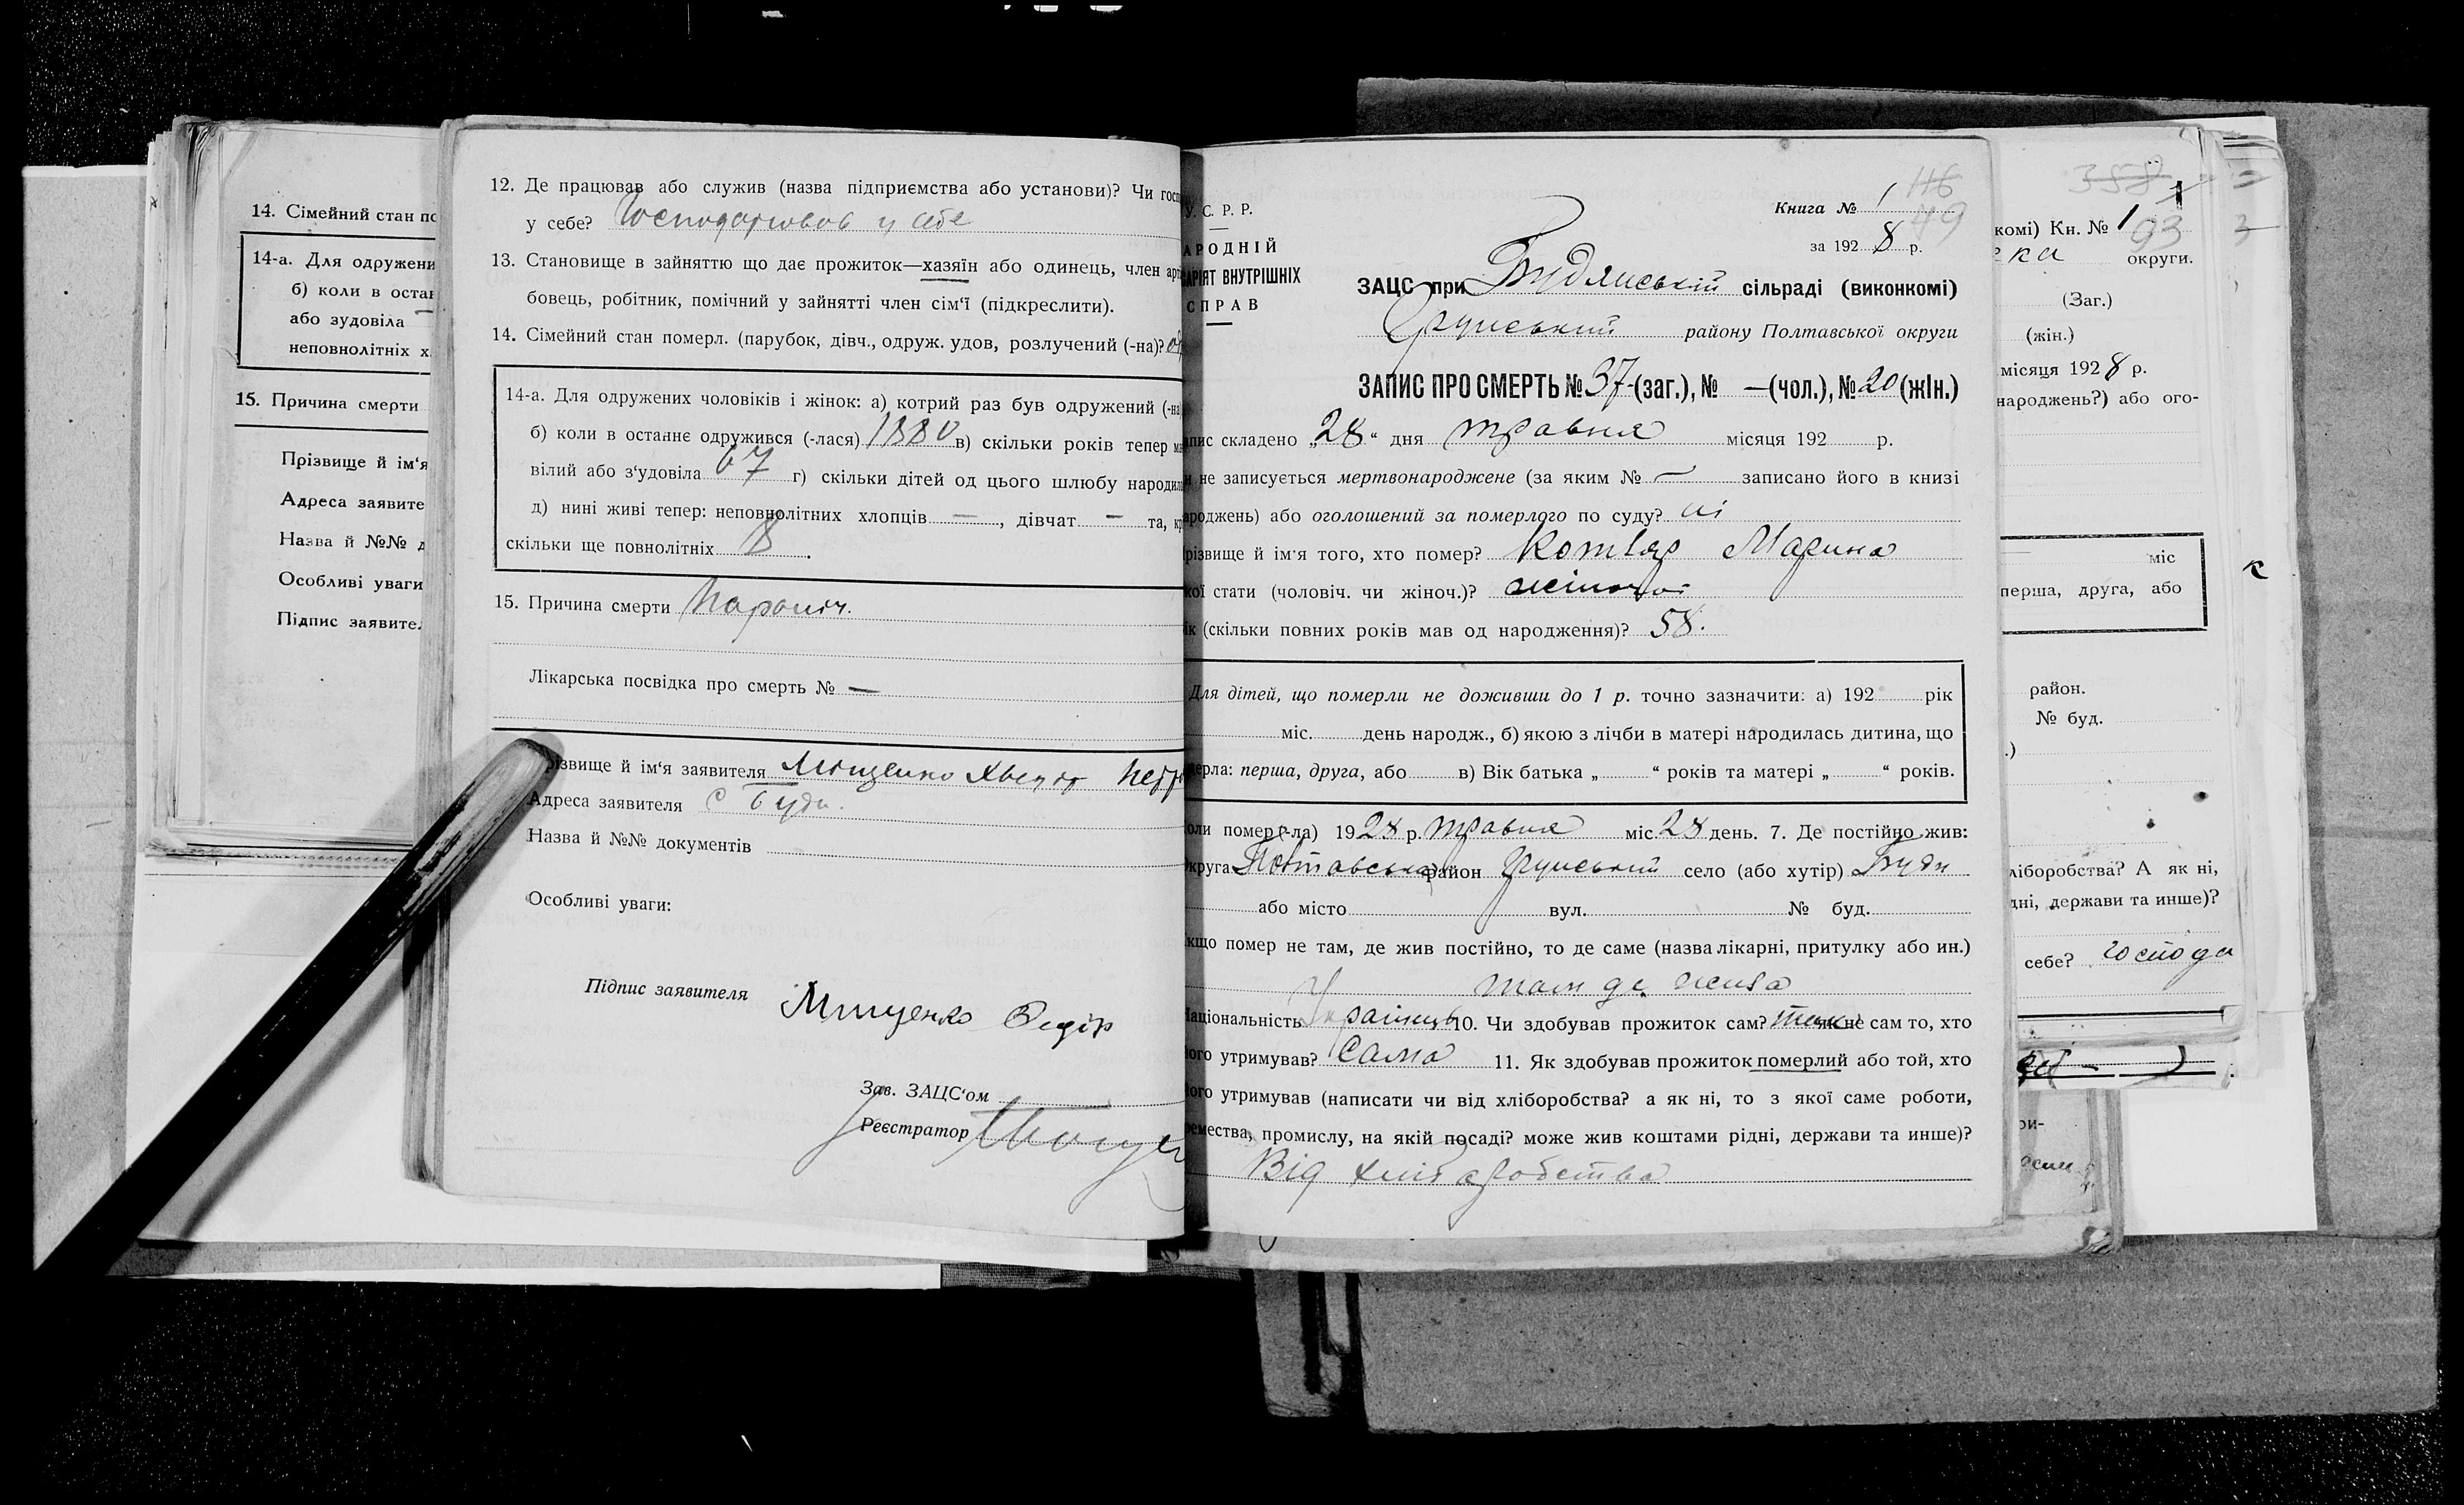 14. Сімейний стан по
14-а. Для одружени
б) коли в остан
або зудовіла —
неповнолітніх х
15. Причина смерти
Прізвище й ім‘я
Адреса заявите
Назва й №№ д
Особливі уваги
Підпис заявите
12. Де працював або служив (назва підприємства або установи)? Чи госп
у себе? Господарював у себе
13. Становище в зайняттю що дає прожиток—хазяїн або одинець, член арт
бовець, робітник, помічний у зайнятті член сім‘ї (підкреслити).
14. Сімейний стан померл. (парубок, дівч., одруж. удов, розлучений (-на)?
14-а. Для одружених чоловіків і жінок: а) котрий раз був одружений (-на
б) коли в останнє одружився (-лася) 1880 в) скільки років тепер ма
вілий або з‘удовіла 67 г) скільки дітей од цього шлюбу народил
д) нині живі тепер: неповнолітних хлопців —, дівчат — та, кр
скільки ще повнолітніх 8.
15. Причина смерти
Лікарська посвідка про смерть № —
різвище й ім‘я заявителя Мищенко Хведір Петр
Адреса заявителя с Буди.
Назва й №№ документів
Особливі уваги:
Підпис заявителя Мищенко Федір
Зав. ЗАЦС‘ом
Реєстратор
У. С. Р. Р.
АРОДНІЙ
АРІЯТ ВНУТРІШНІХ
СПРАВ
116
Книга № 1
за 192 8 р.
ЗАЦС при Будянській сільраді (виконкомі)
Грунський району Полтавської округи
ЗАПИС ПРО СМЕРТЬ № 37 (заг.), № — (чол.), № 20 (жін.)
апис складено „28“ дня травня місяця 192 р.
и не записується мертвонароджене (за яким № — записано його в книзі
ароджень) або оголошений за померлого по суду? ні
різвище й ім‘я того, хто помер? Котляр Марина
кої стати (чоловіч. чи жіноч.)? жіночої
ік (скільки повних років мав од народження)? 58.
Для дітей, що померли не доживши до 1 р. точно зазначити: а) 192 рік
міс. день народж., б) якою з лічби в матері народилась дитина, що
мерла: перша, друга, або в) Вік батька „ “ років та матері „ “ років.
оли помер(-ла) 1928 р. травня міс 28 день. 7. Де постійно жив:
круга Полтавська район Грунський село (або хутір) Буди
або місто вул. № буд.
кщо помер не там, де жив постійно, то де саме (назва лікарні, притулку або ин.)
там де жила
аціональність Українець 10. Чи здобував прожиток сам? так як не сам то, хто
ого утримував? сама 11. Як здобував прожиток померлий або той, хто
ого утримував (написати чи від хліборобства? а як ні, то з якої саме роботи,
ремества, промислу, на якій посаді? може жив коштами рідні, держави та инше)?
Від хліборобства
358
комі) Кн. № 1
93
ека округи.
(Заг.)
(жін.)
місяця 192 8 р.
народжень?) або ого-
міс
перша, друга, або
район.
№ буд.
.)
ліборобства? А як ні,
дні, держави та инше)?
себе? господа
ри-